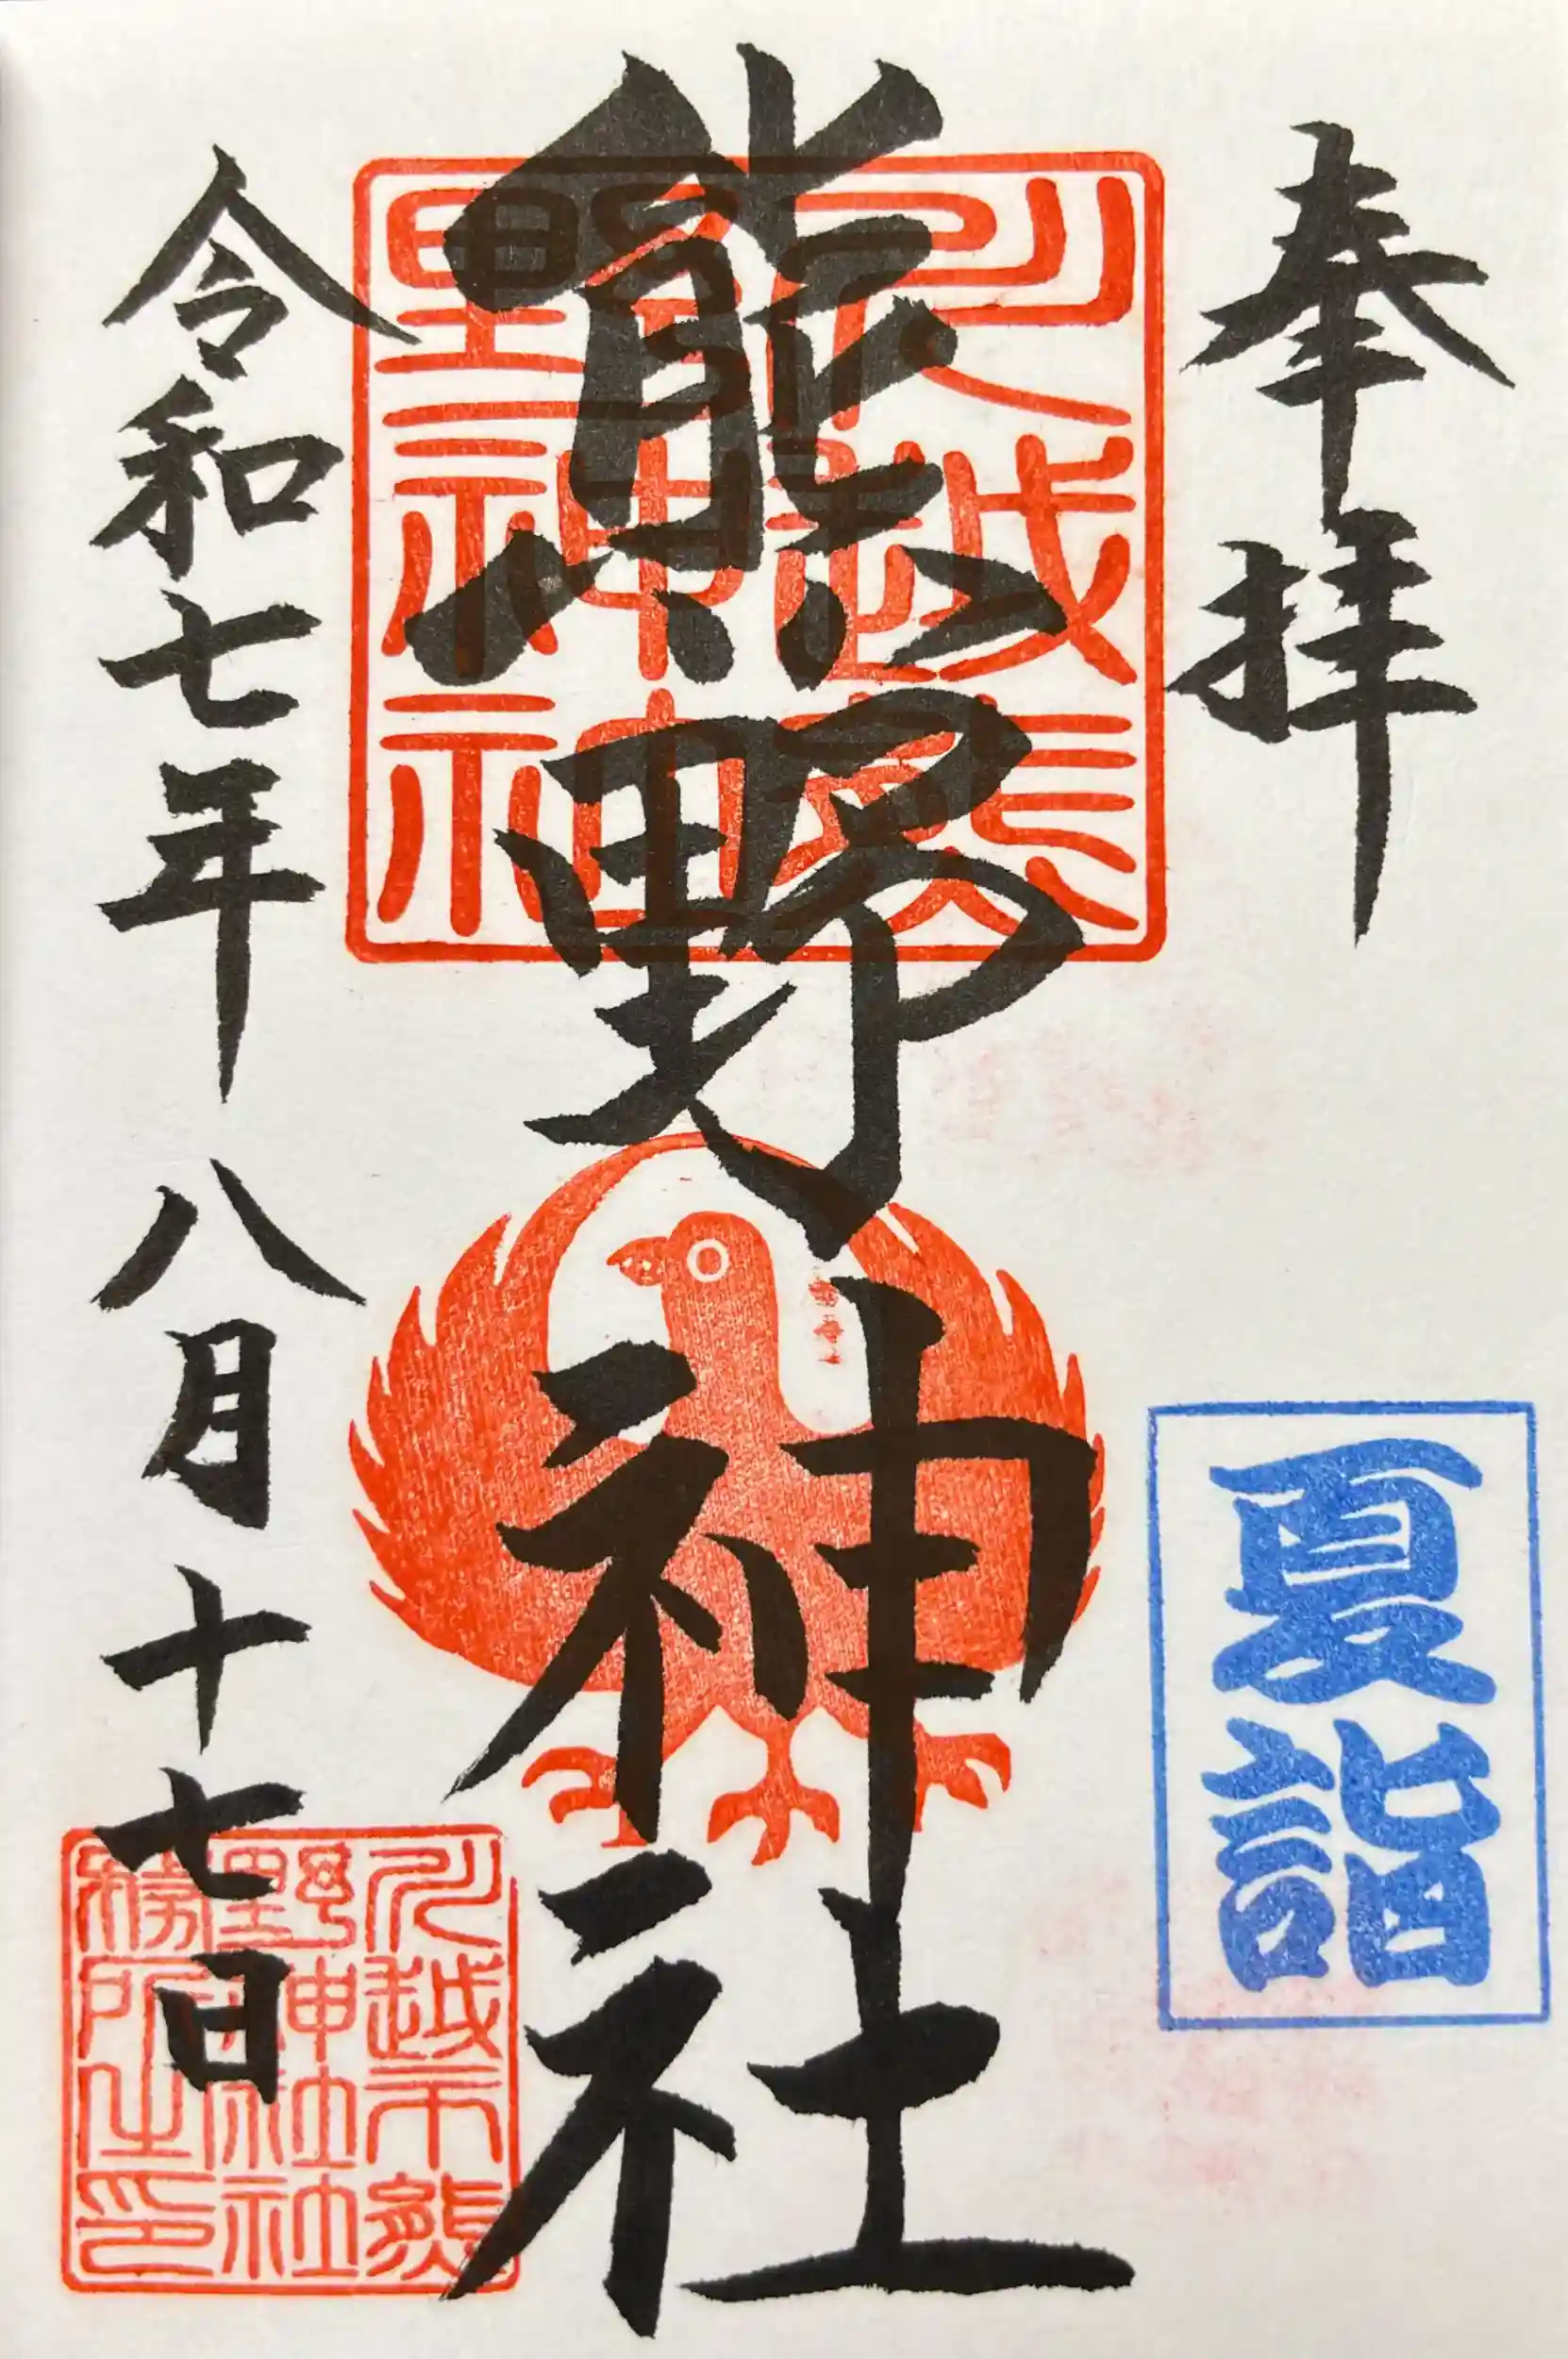 奉拝
夏詣
熊野神社
川越熊
野神
令和七年八月十七日
川越市熊
野神社社
務所之印